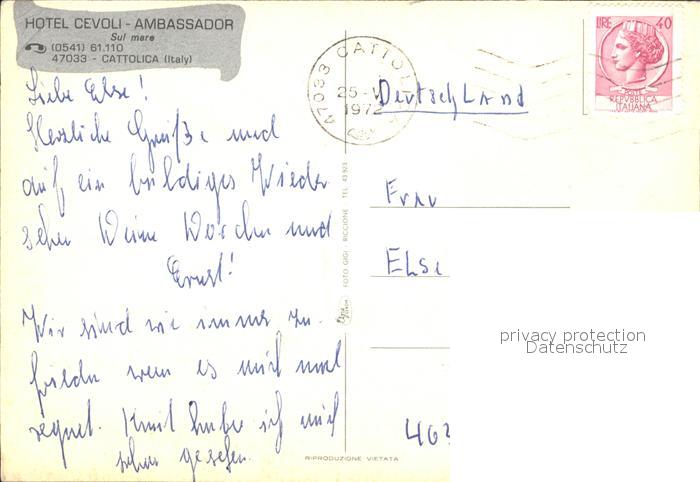 HOTEL CEVOLI - AMBASSADOR
Sul mare
(0541) 61.110
47033 - CATTOLICA (Italy)
Liebe Else!
Herzliche Grüße und
auf ein baldiges Wieder
sehen Deine und
Ernst!
Wir sind wie immer zu-
frieden wenn es auch mal
regnet. habe ich auch
schon gesehen.
47033 CATTOL
25-V
1972
LIRE 40
POSTE
REPVBBLICA
ITALIANA
Deutschland
Frau
Else
privacy protection
Datenschutz
FOTO GIGI - RICCIONE TEL. 43923
RIPRODUZIONE VIETATA